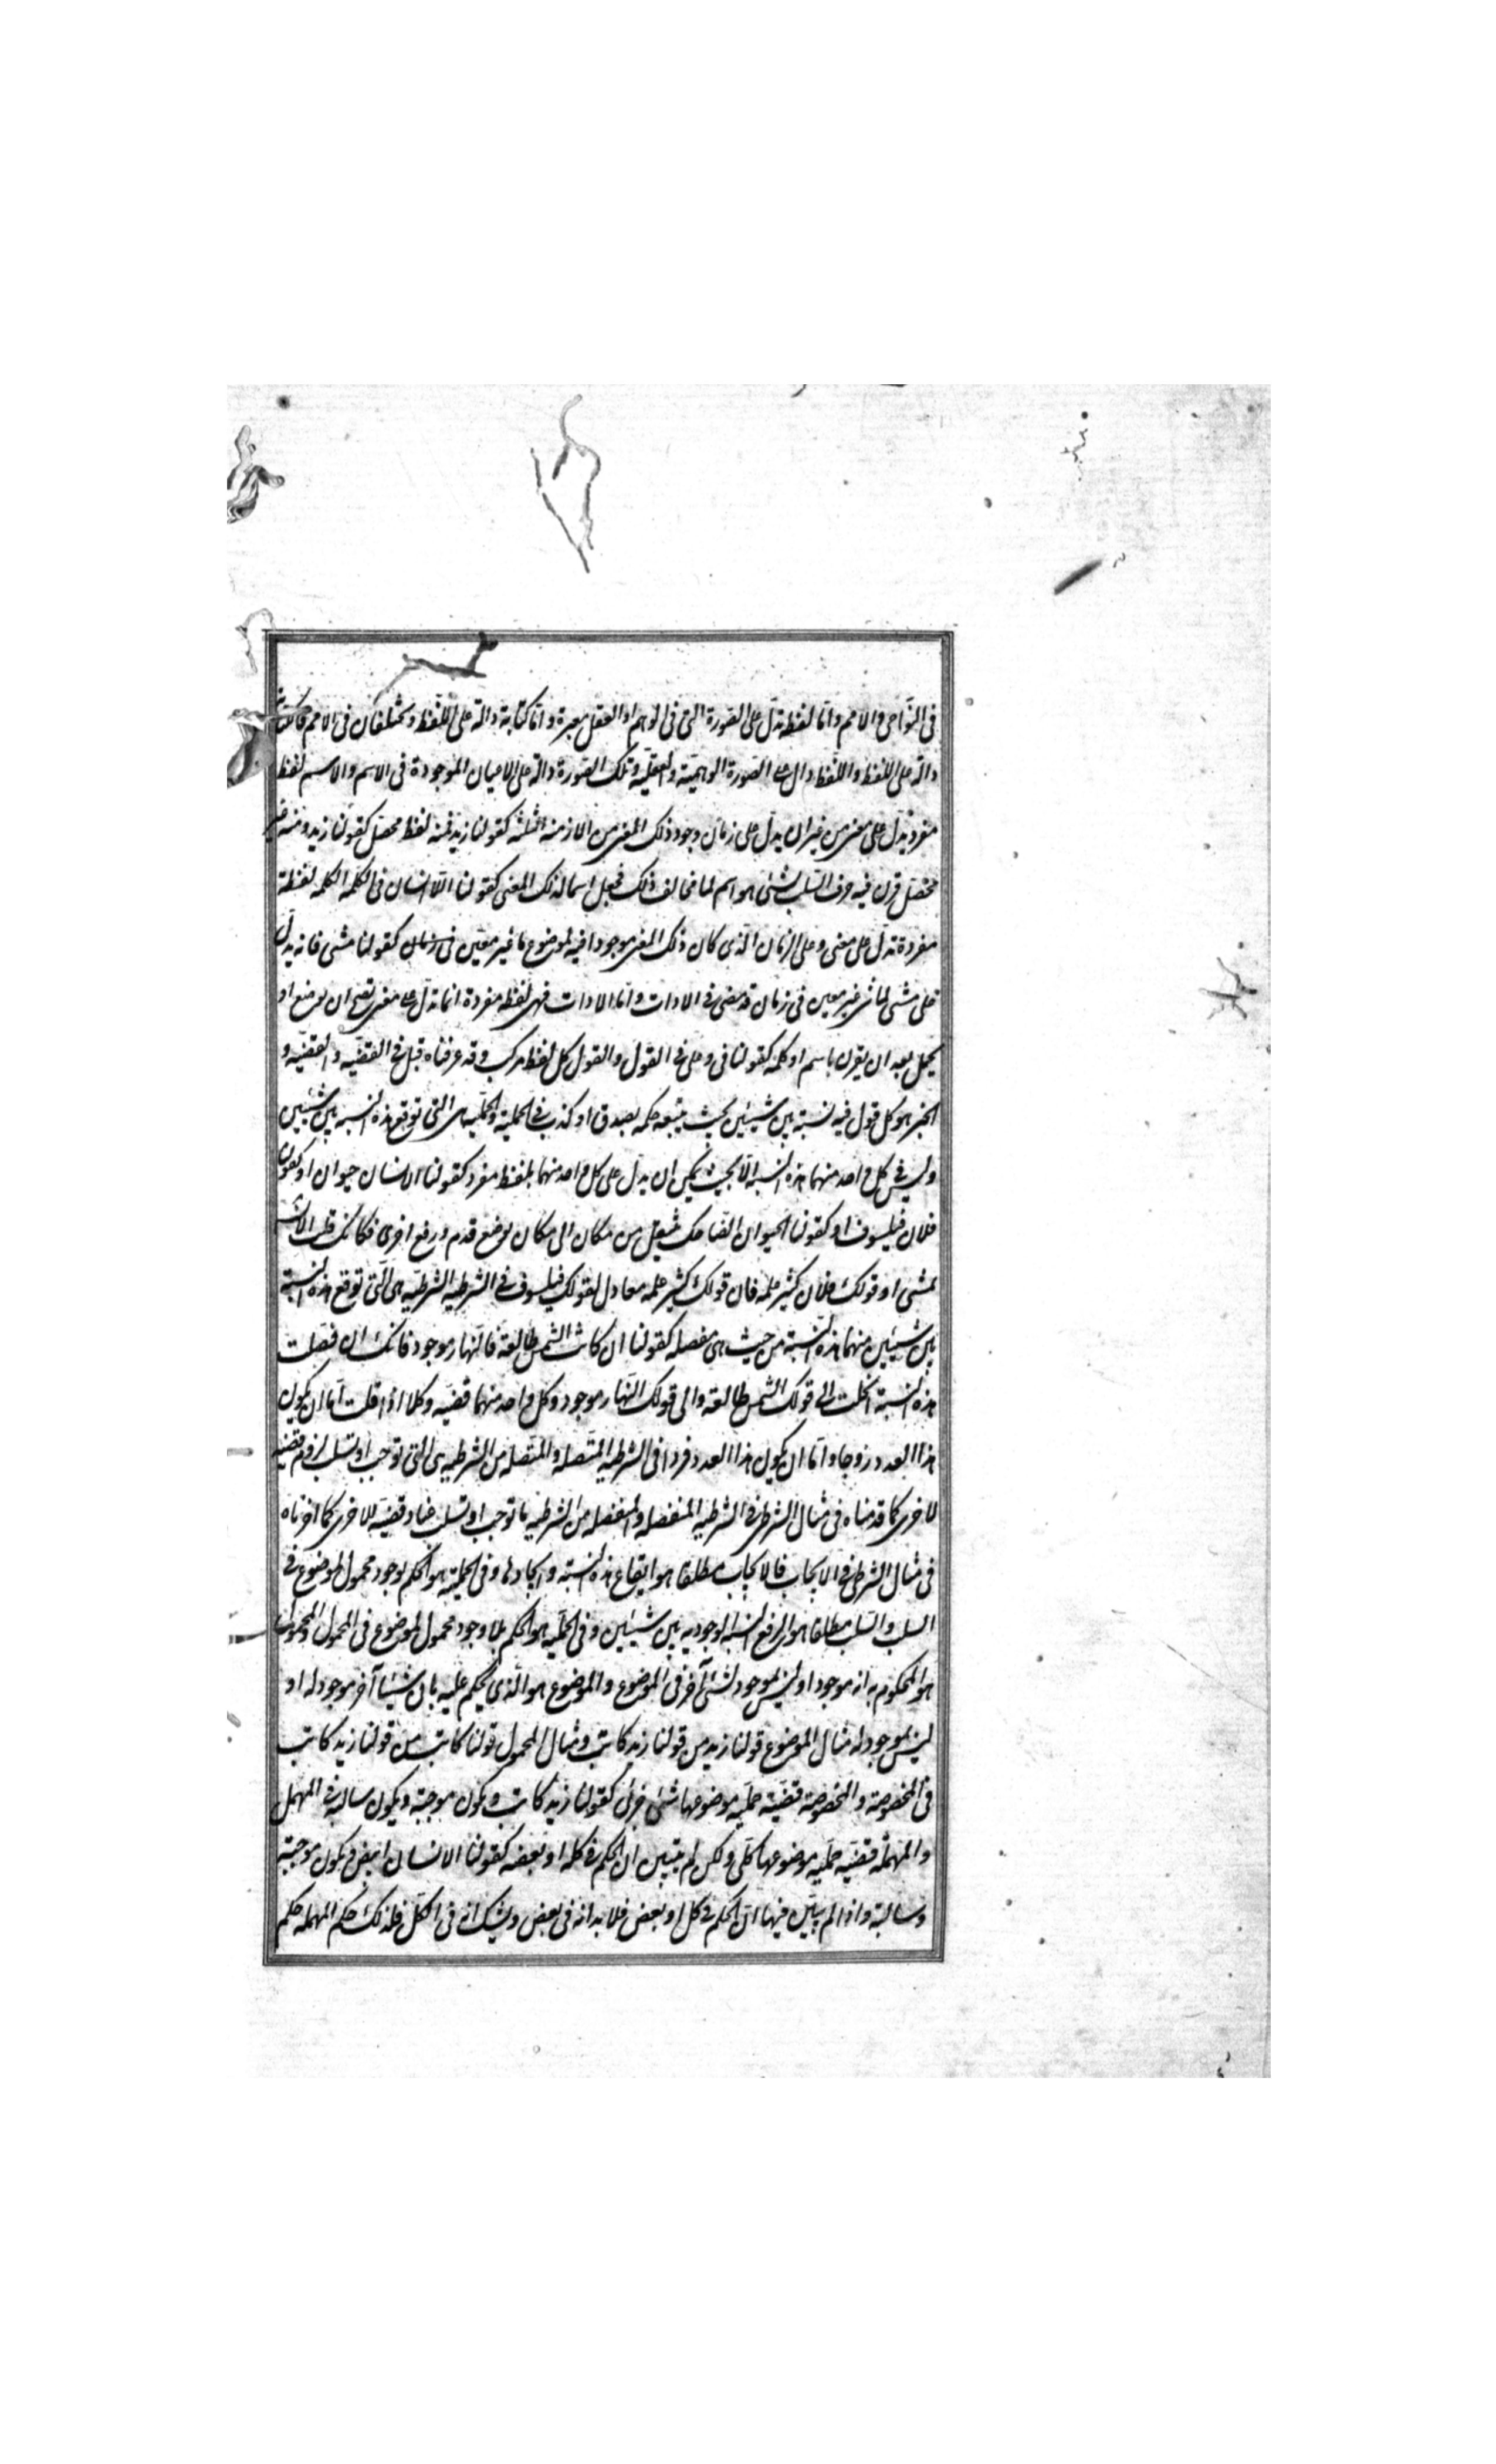 فى النواحى والامم واما لفظة تدل على الصورة التى فى الوهم او العقل معبرة واما كتابة دالة على اللفظ ويختلفان فى الامم فالكتابة
دالة على اللفظ واللفظ دال على الصورة الوهمية والعقلية وتلك الصورة دالة على الاعيان الموجودة فى الاسم والاسم لفظ
مفرد تدل على معنى من غير ان يدل على زمان وجود ذلك المعنى من الازمنة الثلثة كقولنا زيد فمنه لفظ محصل كقولنا زيد ومنه غير
محصل قرن فيه حرف السلب بشئ هو اسم لما يخالف ذلك فجعل اسما لذلك المعنى كقولنا اللاانسان فى الكلمة الكلمه لفظة
مفردة تدل على معنى وعلى الزمان الذى كان ذلك المعنى موجودا فيه لموضوع ما غير معين فى زمان كقولنا مشى فانه يدل
على مشى لماش غير معين فى زمان قد مضى فى الادات واما الادات فهى لفظة مفردة انما تدل على معنى يصح ان يوضع او
يحمل بعد ان يقرن باسم او كلمه كقولنا فى وعلى فى القول والقول كل لفظ مركب وقد عرفناه قبل فى القضيه والقضيه و
الخبر هو كل قول فيه نسبة بين شيئين بحيث يتبعه حكم بصدق او كذب فى الحملية والحملية هى التى توقع هذه النسبه بين شيئين
وليس فى كل واحد منهما هذه النسبه الا بحيث يمكن ان يدل على كل واحد منهما بلفظ مفرد كقولنا الانسان حيوان او كقولنا
فلان فيلسوف او كقولنا الحيوان الضاحك ينتقل من مكان الى مكان بوضع قدم ورفع اخرى فكانك قلت الانسان
يمشى او قولك فلان كثير علمه فان قولك كثير علمه معادل لقولك فيلسوف فى الشرطيه الشرطيه هى التى توقع هذه النسبة
بين شيئين منهما هذه النسبة من حيث هى مفصله كقولنا ان كانت الشمس طالعة فالنهار موجود فانك ان فصلت
هذه النسبة انحلت الى قولك الشمس طالعة والى قولك النهار موجود وكل واحد منهما قضيه وكلا اذا قلت اما ان يكون
هذا العدد زوجا واما ان يكون هذا العدد فردا فى الشرطيه المتصله والمتصله من الشرطيه هى التى توجب او تسلب لزوم قضيه
لاخرى كما قدمناه فى مثال الشرطى فى الشرطيه المنفصله والمنفصله من الشرطيه ما توجب او تسلب عناد قضيه للاخرى كما اخرناه
فى مثال الشرطى فى الايجاب فالايجاب مطلقا هو ايقاع هذه النسبة وايجادها وفى الحملية هو الحكم بوجود محمول لموضوع فى
السلب والسلب مطلقا هو الرفع النسبه الوجوديه بين شيئين وفى الحملية هو الحكم بلا وجود محمول لموضوع فى المحمول والمحمول
هو المحكوم به انه موجود او ليس بموجود لشئ آخر فى الموضوع والموضوع هو الذى يحكم عليه بان شيئا آخر موجود له او
ليس بموجود له مثال الموضوع قولنا زيد من قولنا زيد كاتب ومثال المحمول قولنا كاتب من قولنا زيد كاتب
فى المخصوصة والمخصوصة قضية حملية موضوعها شئ جزئى كقولنا زيد كاتب ويكون موجبة ويكون سالبة فى المهمل
والمهملة قضيه حمليه موضوعها كلى ولكن لم يتبين ان الحكم فى كله او بعضه كقولنا الانسان ابيض ويكون موجبة
وسالبة واذا لم يتبين فيها ان الحكم فى كل او بعض فلا بد انه فى بعض ويشك انه فى الكل فلذلك حكم المهمله حكم